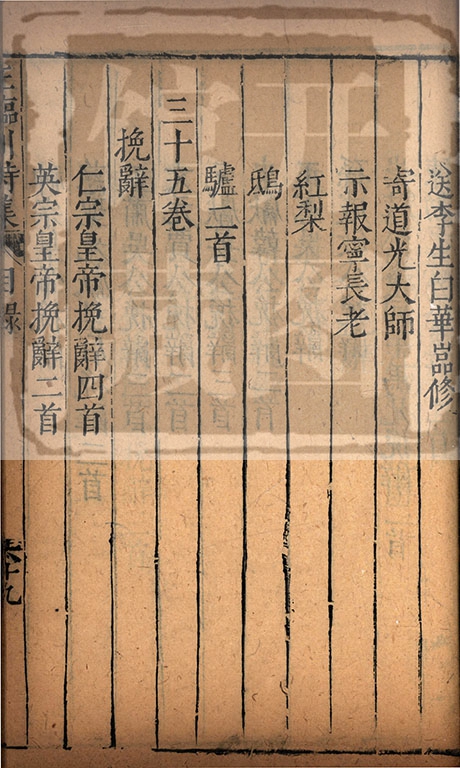 送李生白華嵓修
寄道光大師
示報寧長老
紅梨
鴟
驢二首
三十五卷
挽辭
仁宗皇帝挽辭四首
英宗皇帝挽辭二首
王臨川詩集 目錄
六十九